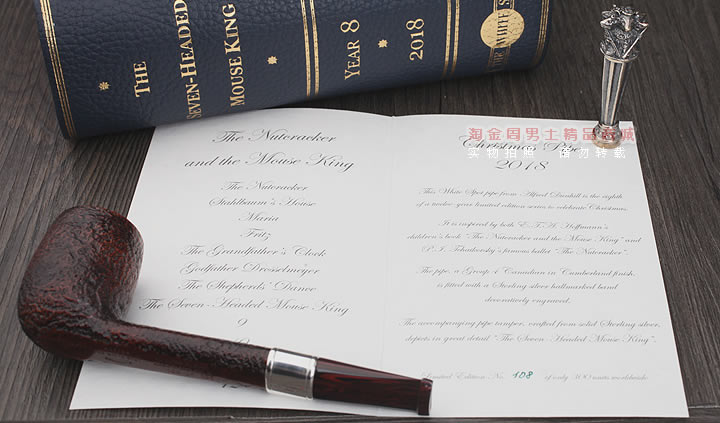 THE
SEVEN-HEADED
MOUSE KING
YEAR 8
2018
The Nutcracker
and the Mouse King
The Nutcracker
Stahlbaum's House
Maria
Fritz
The Grandfather's Clock
Godfather Drosselmeyer
The Shepherds' Dance
The Seven-Headed Mouse King
9
Christmas Pipe
2018
This White Spot pipe from Alfred Dunhill is the eighth
of a twelve year limited edition series to celebrate Christmas.
It is inspired by both E.T.A. Hoffmann's
children's book "The Nutcracker and the Mouse King" and
P.I. Tchaikovsky's famous ballet "The Nutcracker".
The pipe, a Group 4 Canadian in Cumberland finish,
is fitted with a Sterling silver hallmarked band
decoratively engraved.
The accompanying pipe tamper, crafted from solid Sterling silver,
depicts in great detail "The Seven-Headed Mouse King".
Limited Edition No. 108 of only 300 units worldwide
淘金周男士精品商城
实物拍照 请勿转载